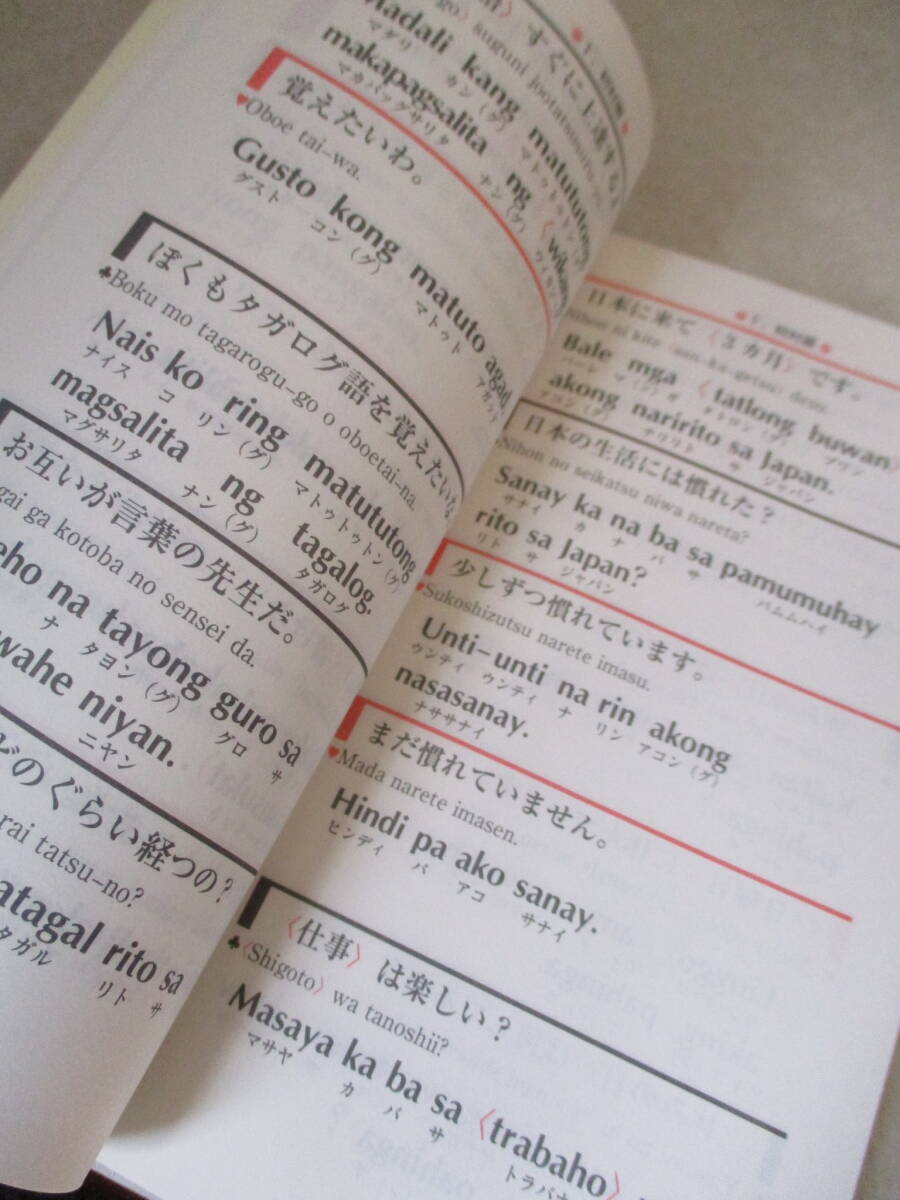 すぐに上達するよ
go〉 suguni jootatsusuru-yo.
Madali kang matututong
マダリ カン（グ） マトゥトゥトン
makapagsalita ng 〈wikang
マカパッグサリタ ナン（グ） ウィカン
覚えたいわ。
♥Oboe tai–wa.
Gusto kong matuto agad.
グスト コン（グ） マトゥト アガッド
ぼくもタガログ語を覚えたいな
♣Boku mo tagarogu–go o oboetai–na.
Nais ko ring matututong
ナイス コ リン（グ） マトゥトゥトン（グ）
magsalita ng tagalog.
マグサリタ ナン（グ） タガログ
お互いが言葉の先生だ。
gai ga kotoba no sensei da.
eho na tayong guro sa
ナ タヨン（グ） グロ サ
wahe niyan.
ニヤン
どのぐらい経つの？
rai tatsu–no?
atagal rito sa
タガル リト サ
日本に来て〈3カ月〉です。
Nihon ni kite 〈san–ka–getsu〉 desu.
Bale mga 〈tatlong buwan〉
バーレ マ（ン）ガ タトロン（グ） ブワン
akong naririto sa Japan.
アコン（グ） ナリリト サ ジャパン
日本の生活には慣れた？
Nihon no seikatsu niwa nareta?
Sanay ka na ba sa pamumuhay
サナイ カ ナ バ サ パムムハイ
rito sa Japan?
リト サ ジャパン
少しずつ慣れています。
♥Sukoshizutsu narete imasu.
Unti–unti na rin akong
ウンティ ウンティ ナ リン アコン（グ）
nasasanay.
ナササナイ
まだ慣れていません。
♥Mada narete imasen.
Hindi pa ako sanay.
ヒンディ パ アコ サナイ
〈仕事〉は楽しい？
♣〈Shigoto〉 wa tanoshii?
Masaya ka ba sa 〈trabaho〉
マサヤ カ バ サ トラバホ